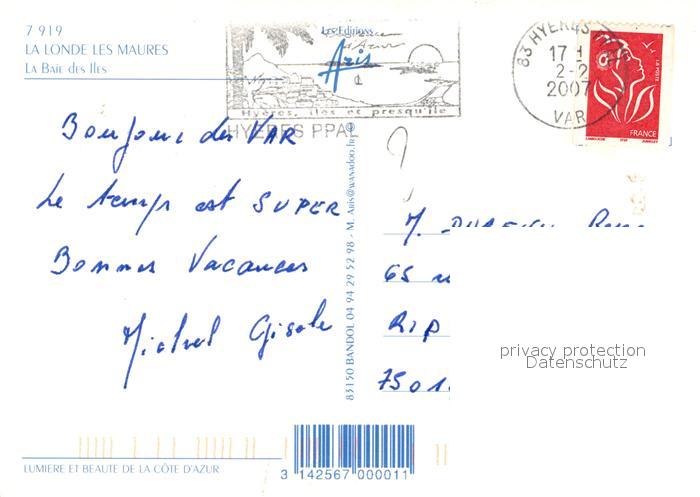 7 919
LA LONDE LES MAURES
La Baie des Iles
Les Editions
d'Azur
Aris
Hyères, îles et presqu'île
HYERES PPAL
83 HYERES PPAL
17 H
2-2
2007
VAR
LA POSTE
FRANCE
Bonjour du VAR
Le temps est SUPER
Bonnes Vacances
Michel Gisele
83150 BANDOL 04 94 29 52 98 - M. Aris@wanadoo.fr ©
M.
65
RIP
7501
privacy protection
Datenschutz
LUMIERE ET BEAUTE DE LA CÔTE D'AZUR
3 142567 000011